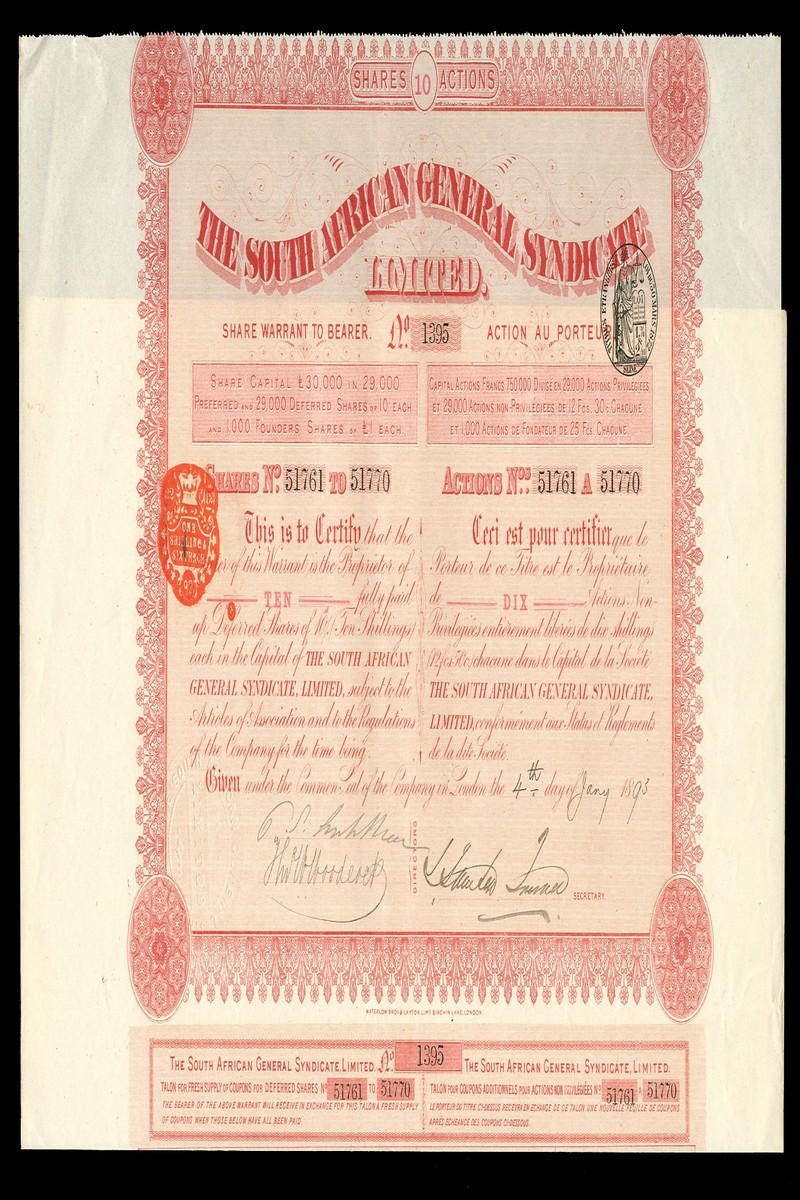 SHARES 10 ACTIONS
THE SOUTH AFRICAN GENERAL SYNDICATE
LIMITED.
SHARE WARRANT TO BEARER. No. 1395 ACTION AU PORTEU
TIMBRES ETRANGERS DU 30 MARS 1872
SEINE
SHARE CAPITAL £30,000 IN 29,000
PREFERRED AND 29,000 DEFERRED SHARES OF 10/ EACH
AND 1,000 FOUNDERS SHARES OF £1 EACH.
CAPITAL ACTIONS FRANCS 750.000 DIVISÉ EN 29000 ACTIONS PRIVILÉGIÉES
ET 29,000 ACTIONS NON-PRIVILÉGIÉES DE 12 FCS. 50C. CHACUNE
ET 1,000 ACTIONS DE FONDATEUR DE 25 FCS. CHACUNE.
SHARES No. 51761 TO 51770
ONE
SHILLING &
SIXPENCE
This is to Certify that the
er of this Warrant is the Proprietor of
TEN fully paid
up Deferred Shares of 10/. (Ten Shillings)
each in the Capital of THE SOUTH AFRICAN
GENERAL SYNDICATE, LIMITED, subject to the
Articles of Association and to the Regulations
of the Company for the time being.
ACTIONS Nos. 51761 A 51770
Ceci est pour certifier que le
Porteur de ce Titre est le Propriétaire
de DIX Actions Non-
Privilégiées entièrement libérées de dix shillings
(12fcs 50c) chacune dans le Capital de la Société
THE SOUTH AFRICAN GENERAL SYNDICATE,
LIMITED, conformément aux Statuts et Règlements
de la dite Société.
Given under the Common Seal of the Company in London the 4th day of Jany 1893
DIRECTORS
SECRETARY.
WATERLOW BROS & LAYTON, LIMD BIRCHIN LANE, LONDON.
THE SOUTH AFRICAN GENERAL SYNDICATE, LIMITED. No. 1395 THE SOUTH AFRICAN GENERAL SYNDICATE, LIMITED.
TALON FOR FRESH SUPPLY OF COUPONS FOR DEFERRED SHARES No 51761 TO 51770
THE BEARER OF THE ABOVE WARRANT WILL RECEIVE IN EXCHANGE FOR THIS TALON A FRESH SUPPLY
OF COUPONS WHEN THOSE BELOW HAVE ALL BEEN PAID.
TALON POUR COUPONS ADDITIONNELS POUR ACTIONS NON PRIVILÉGIÉES No 51761 A 51770
LE PORTEUR DU TITRE CI-DESSUS RECEVRA EN ECHANGE DE CE TALON UNE NOUVELLE FEUILLE DE COUPONS
APRÈS ECHEANCE DES COUPONS CI-DESSOUS.